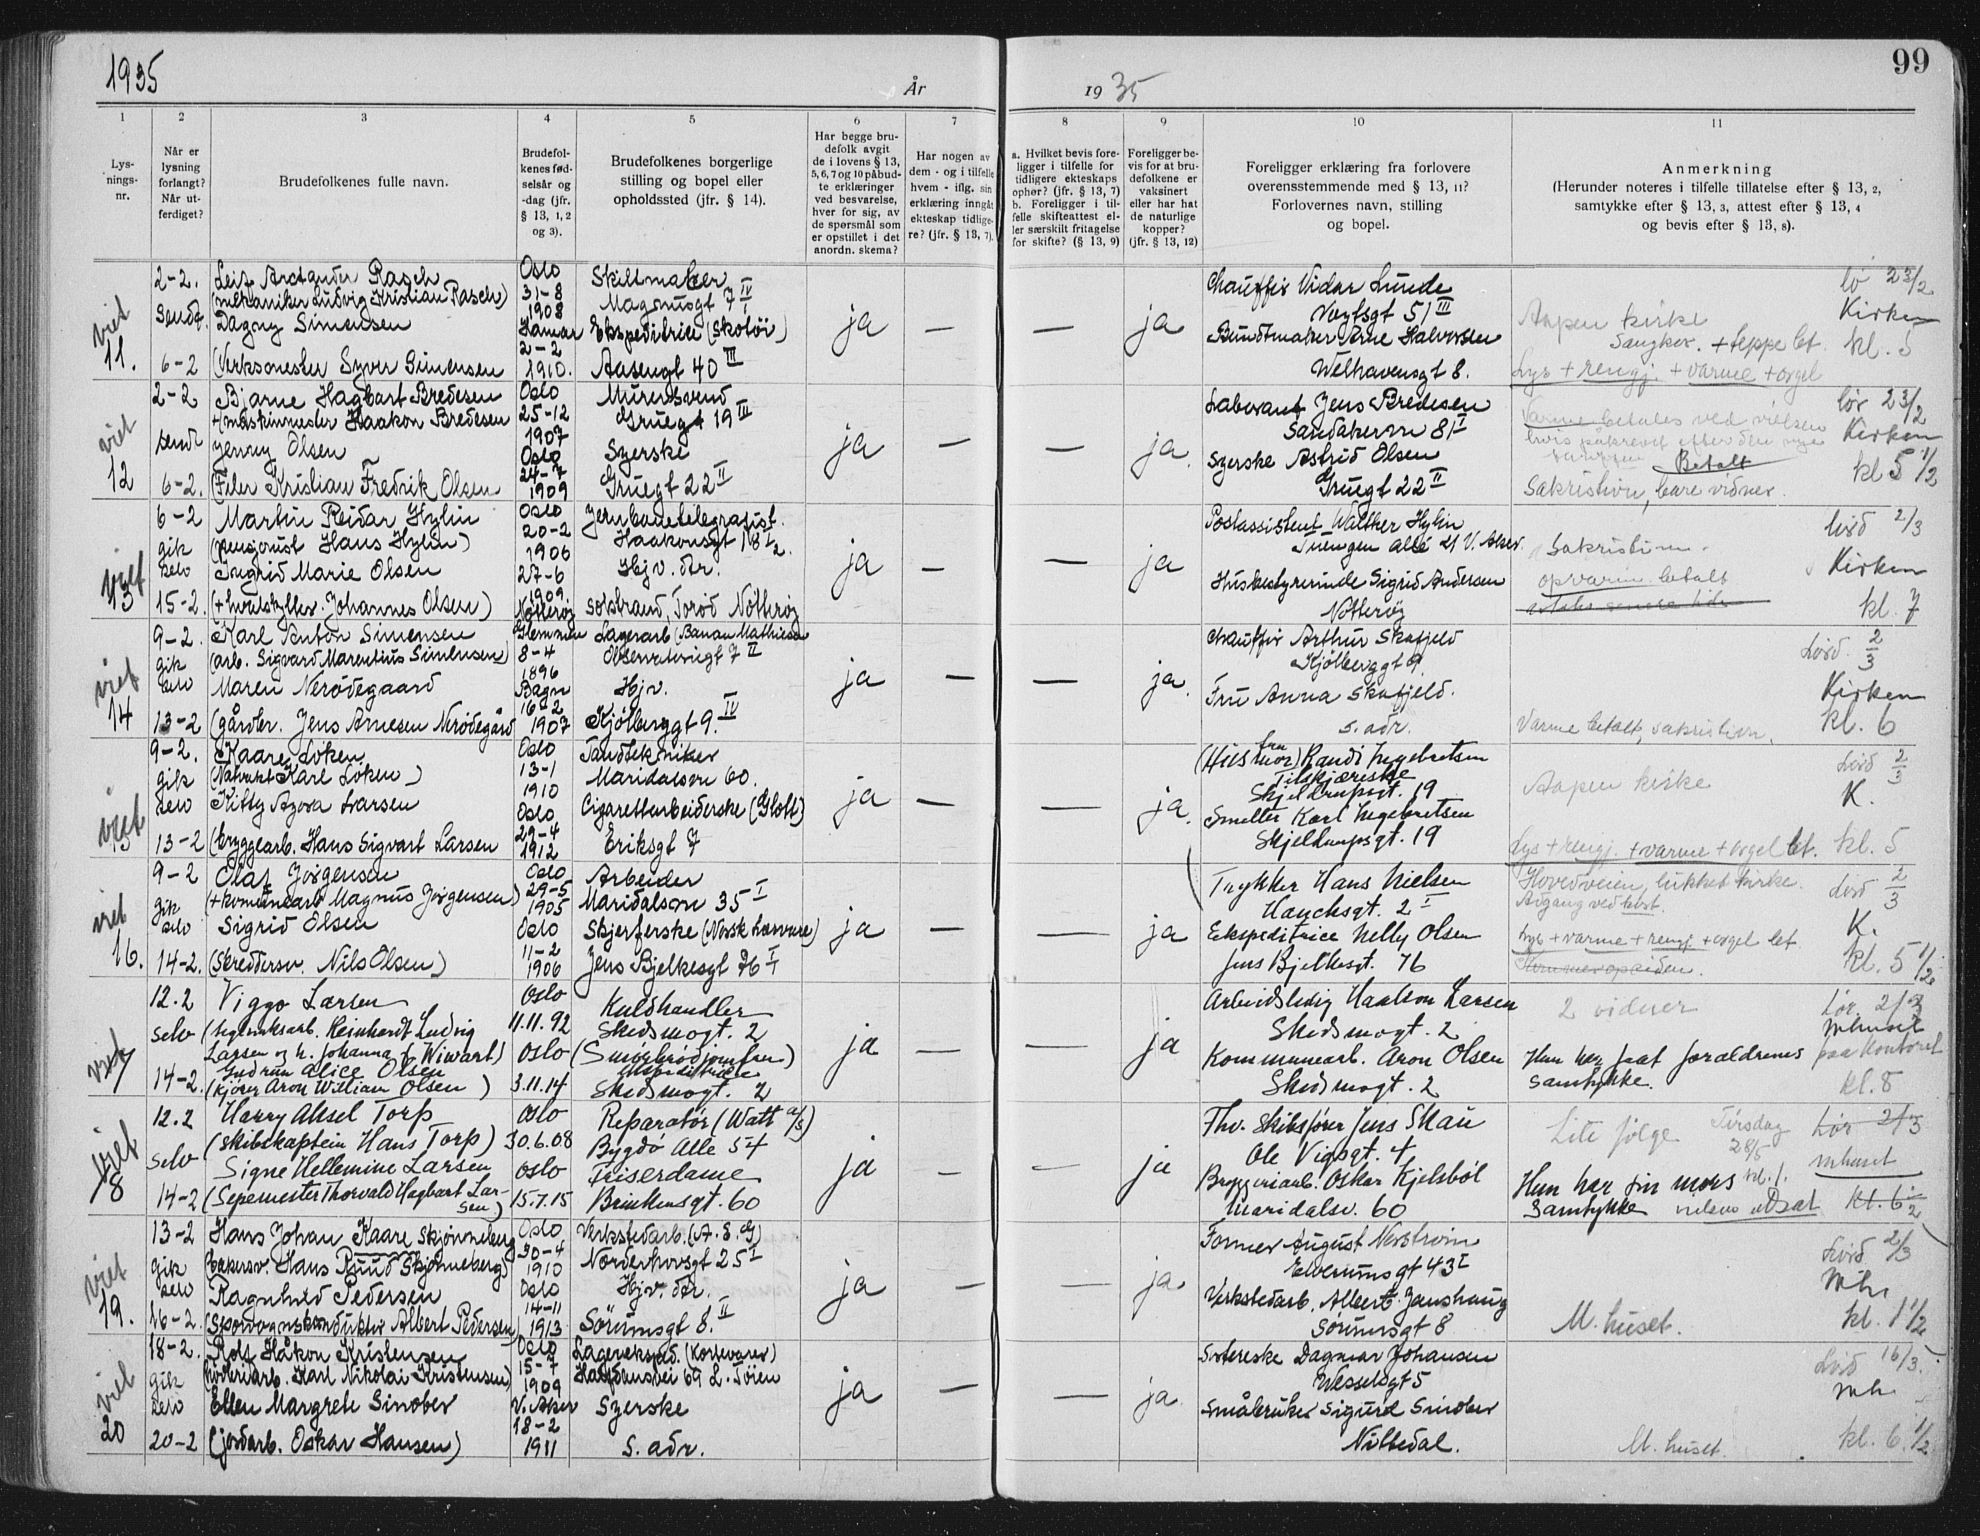 1935
År
19 35
99
1
2
3
4
5
6
7
8
9
10
11
Lys-
nings-
nr.
Når er
lysning
forlangt?
Når ut-
ferdiget?
Brudefolkenes fulle navn.
Brudefol-
kenes fød-
selsår og
-dag (jfr.
§ 13, 1, 2
og 3).
Brudefolkenes borgerlige
stilling og bopel eller
opholdssted (jfr. § 14).
Har begge bru-
defolk avgit
de i lovens § 13,
5, 6, 7 og 10 påbud-
te erklæringer
ved besvarelse,
hver for sig, av
de spørsmål som
er opstillet i det
anordn. skema?
Har nogen av
dem - og i tilfelle
hvem - iflg. sin
erklæring inngåt
ekteskap tidlige-
re? (jfr. § 13, 7).
a. Hvilket bevis fore-
ligger i tilfelle for
tidligere ekteskaps
ophør? (jfr. § 13, 7)
b. Foreligger i til-
felle skifteattest el-
ler særskilt fritagelse
for skifte? (§ 13, 9)
Foreligger be-
vis for at bru-
defolkene er
vaksinert
eller har hat
de naturlige
kopper?
(jfr. § 13, 12)
Foreligger erklæring fra forlovere
overensstemmende med § 13, 11?
Forlovernes navn, stilling
og bopel.
Anmerkning
(Herunder noteres i tilfelle tillatelse efter § 13, 2,
samtykke efter § 13, 3, attest efter § 13, 4
og bevis efter § 13, 8).
viet
11.
2-2.
6-2
Leif Arctander Rasch
(mekaniker Ludvig Kristian Rasch)
Dagny Simensen
(Verksmester Syver Simensen
Oslo
31-8
1908
Hamar
2-2
1910.
Skiltmaker
Magnusgt 7 IV
Ekspeditrice (Skotøi)
Aasengt 40 III
ja
—
—
ja
Chauffør Vidar Lunde
Vogtsgt 51 III
Bundtmaker Arne Halvorsen
Welhavensgt 8.
Aapen kirke
+ teppe bet.
Lys + rengj. + varme + orgel
lø 23/2
Kirken
kl. 5
viet
12
2-2
sendt
6-2.
Bjarne Hagbart Bredesen
(+ maskinmester Haakon Bredesen
Jenny Olsen
(Filer Kristian Fredrik Olsen
Oslo
25-12
1907
Oslo
24-7
1909
Murersvend
Gruegt 19 III
Syerske
Gruegt 22 II
ja
—
—
ja.
Laborant Jens Bredesen
Sandakervn 81 I
Syerske Astrid Olsen
Gruegt 22 II
Varme betales ved vielsen
Betalt
Sakristien, bare vidner.
lør 23/2
Kirken
kl 5 1/2
viet
13
6-2
gik
selv
15-2.
Martin Reidar Hylin
(pensjonist Hans Hylin)
Ingrid Marie Olsen
(+ hvalskytter Johannes Olsen)
Oslo
20-2
1906
27-6
1909
Nøtterøy
Jernbanetelegrafist.
Hjv. dtr.
Solstrand, Torød Nøtterøy
ja
—
—
ja
Postassistent Walther Hylin
Tuengen allé 21 V. Aker.
Husbestyrerinde Sigrid Andersen
Nøtterøy
Sakristien.
opvarm. betalt
lørd 2/3
Kirken
kl. 7
viet
14
9-2.
gik
selv
13-2
Karl Anton Simensen
(arb. Sigvard Marentius Simensen)
Maren Nerødegaard
(gårdbr. Jens Arnesen Nerødegård
Glemmen
8-4
1896
Bagn
16-2
1907
Lagerarb (Banan Mathiesen
Observatoriegt 7 II
Hjv.
Kjølberggt 9. IV
ja
—
—
ja.
Chauffør Arthur Skafjeld
Kjølberggt 9
Fru Anna Skafjeld.
s. adr.
Varme betalt, sakristien.
Lørd. 2/3
Kirken
kl. 6
viet
15
9-2.
gik
selv
13-2
Kaare Løken
(Nattvakt Karl Løken)
Kitty Azora Larsen
(bryggearb. Hans Sigvart Larsen
Oslo
13-1
1910
Oslo
29-4
1912
Tandtekniker
Maridalsvn 60.
Cigarettarbeiderske (Glott)
Eriksgt 7
ja
—
—
ja.
(Husmor) fru Randi Ingebretsen
Tilskjærerske
Skjeldrupsgt. 19
Smelter Karl Ingebretsen
Skjeldrupsgt. 19
Aapen kirke
Lys + rengj. + varme + orgel bet.
Lørd 2/3
K.
kl. 5
viet
16.
9-2
gik
selv
14-2.
Olaf Jørgensen
(+ kommunearb Magnus Jørgensen)
Sigrid Olsen
(Skreddersv. Nils Olsen)
Oslo
29-5
1905
Oslo
11-2
1906
Arbeider
Maridalsvn 35 I
Skjerferske (Norsk Lærvare)
Jens Bjelkesgt 76 I
ja
—
—
ja
Trykker Hans Nielsen
Hauchsgt. 2 I
Ekspeditrice Nelly Olsen
Jens Bjelkesgt. 76
Hovedveien, lukket kirke.
Adgang ved tekst.
Lys + varme + rengj + orgel bet
Lørd 2/3
K.
kl. 5 1/2
viet
17
12.2
selv
14-2
Viggo Larsen
(teglverksarb. Reinhardt Ludvig
Larsen og h. Johanna f. Wiwart)
Gudrun Alice Olsen
(Kjører Aron William Olsen)
Oslo
11.11.92
Oslo
3.11.14
Kulhandler
Skedsmogt. 2
(Smørbrødjomfru)
Ekspeditrice
Skedsmogt. 2
ja
—
—
ja
Arbeidsledig Haakon Larsen
Skedsmogt. 2
Kommunearb. Aron Olsen
Skedsmogt. 2
2 vidner
Hun har faat forældrenes
samtykke.
Lør. 2/3
mhuset
paa kontoret
kl. 8
viet
18
12.2
selv
14-2
Harry Aksel Torp
(skibskaptein Hans Torp)
Signe Hellemine Larsen
(Sepemester Thorvald Hagbart Lar-
sen)
Oslo
30.6.08
Oslo
15.7.15
Reparatør (Watt a/s)
Bygdø Alle 54
Friserdame
Brinkensgt. 60
ja
—
—
ja
Fhv. Skibsfører Jens Skau
Ole Vigsgt. 4
Bryggeriarb. Oskar Kjelsbøl
Maridalsv. 60
Lite følge
Tirsdag
28/5
Hun har sin mors kl. 1.
Samtykke vielsen utsat
Lør 2/3
mhuset
kl. 6 1/2
viet
19.
13-2
gik
selv
16-2.
Hans Johan Kaare Skjønneberg
(bakersv. Hans Ruud Skjønneberg)
Ragnhild Pedersen
(Sporvognskonduktør Albert Pedersen)
Oslo
30-4
1910
Oslo
14-11
1913
Verkstedarb. (A.E.G)
Norderhovsgt 25 I
Hjv. dtr.
Sørumsgt 8. II
ja
—
—
ja.
Former August Norstrøm
Elverumsgt 43 I
Verkstedarb. Albert Janshaug
Sørumsgt 8
M. huset.
Lørd 2/3
mh.
kl. 1 1/2
viet
20
18-2.
gik
selv
20-2
Rolf Håkon Kristensen
Karl Nikolai Kristensen)
Ellen Margrete Sinober
(jordarb. Oskar Hansen)
Oslo
15-7
1909
V. Aker
18-2
1911
Lagerekspd. (Kortevarer)
Halfdansvei 69 L. Tøien
Syerske
s. adr.
ja
—
—
ja.
Sortereske Dagmar Johansen
Wesselsgt 5
Småbruker Sigurd Sinober
Nittedal.
M. huset.
Lørd 16/3.
mh.
kl. 6 1/2